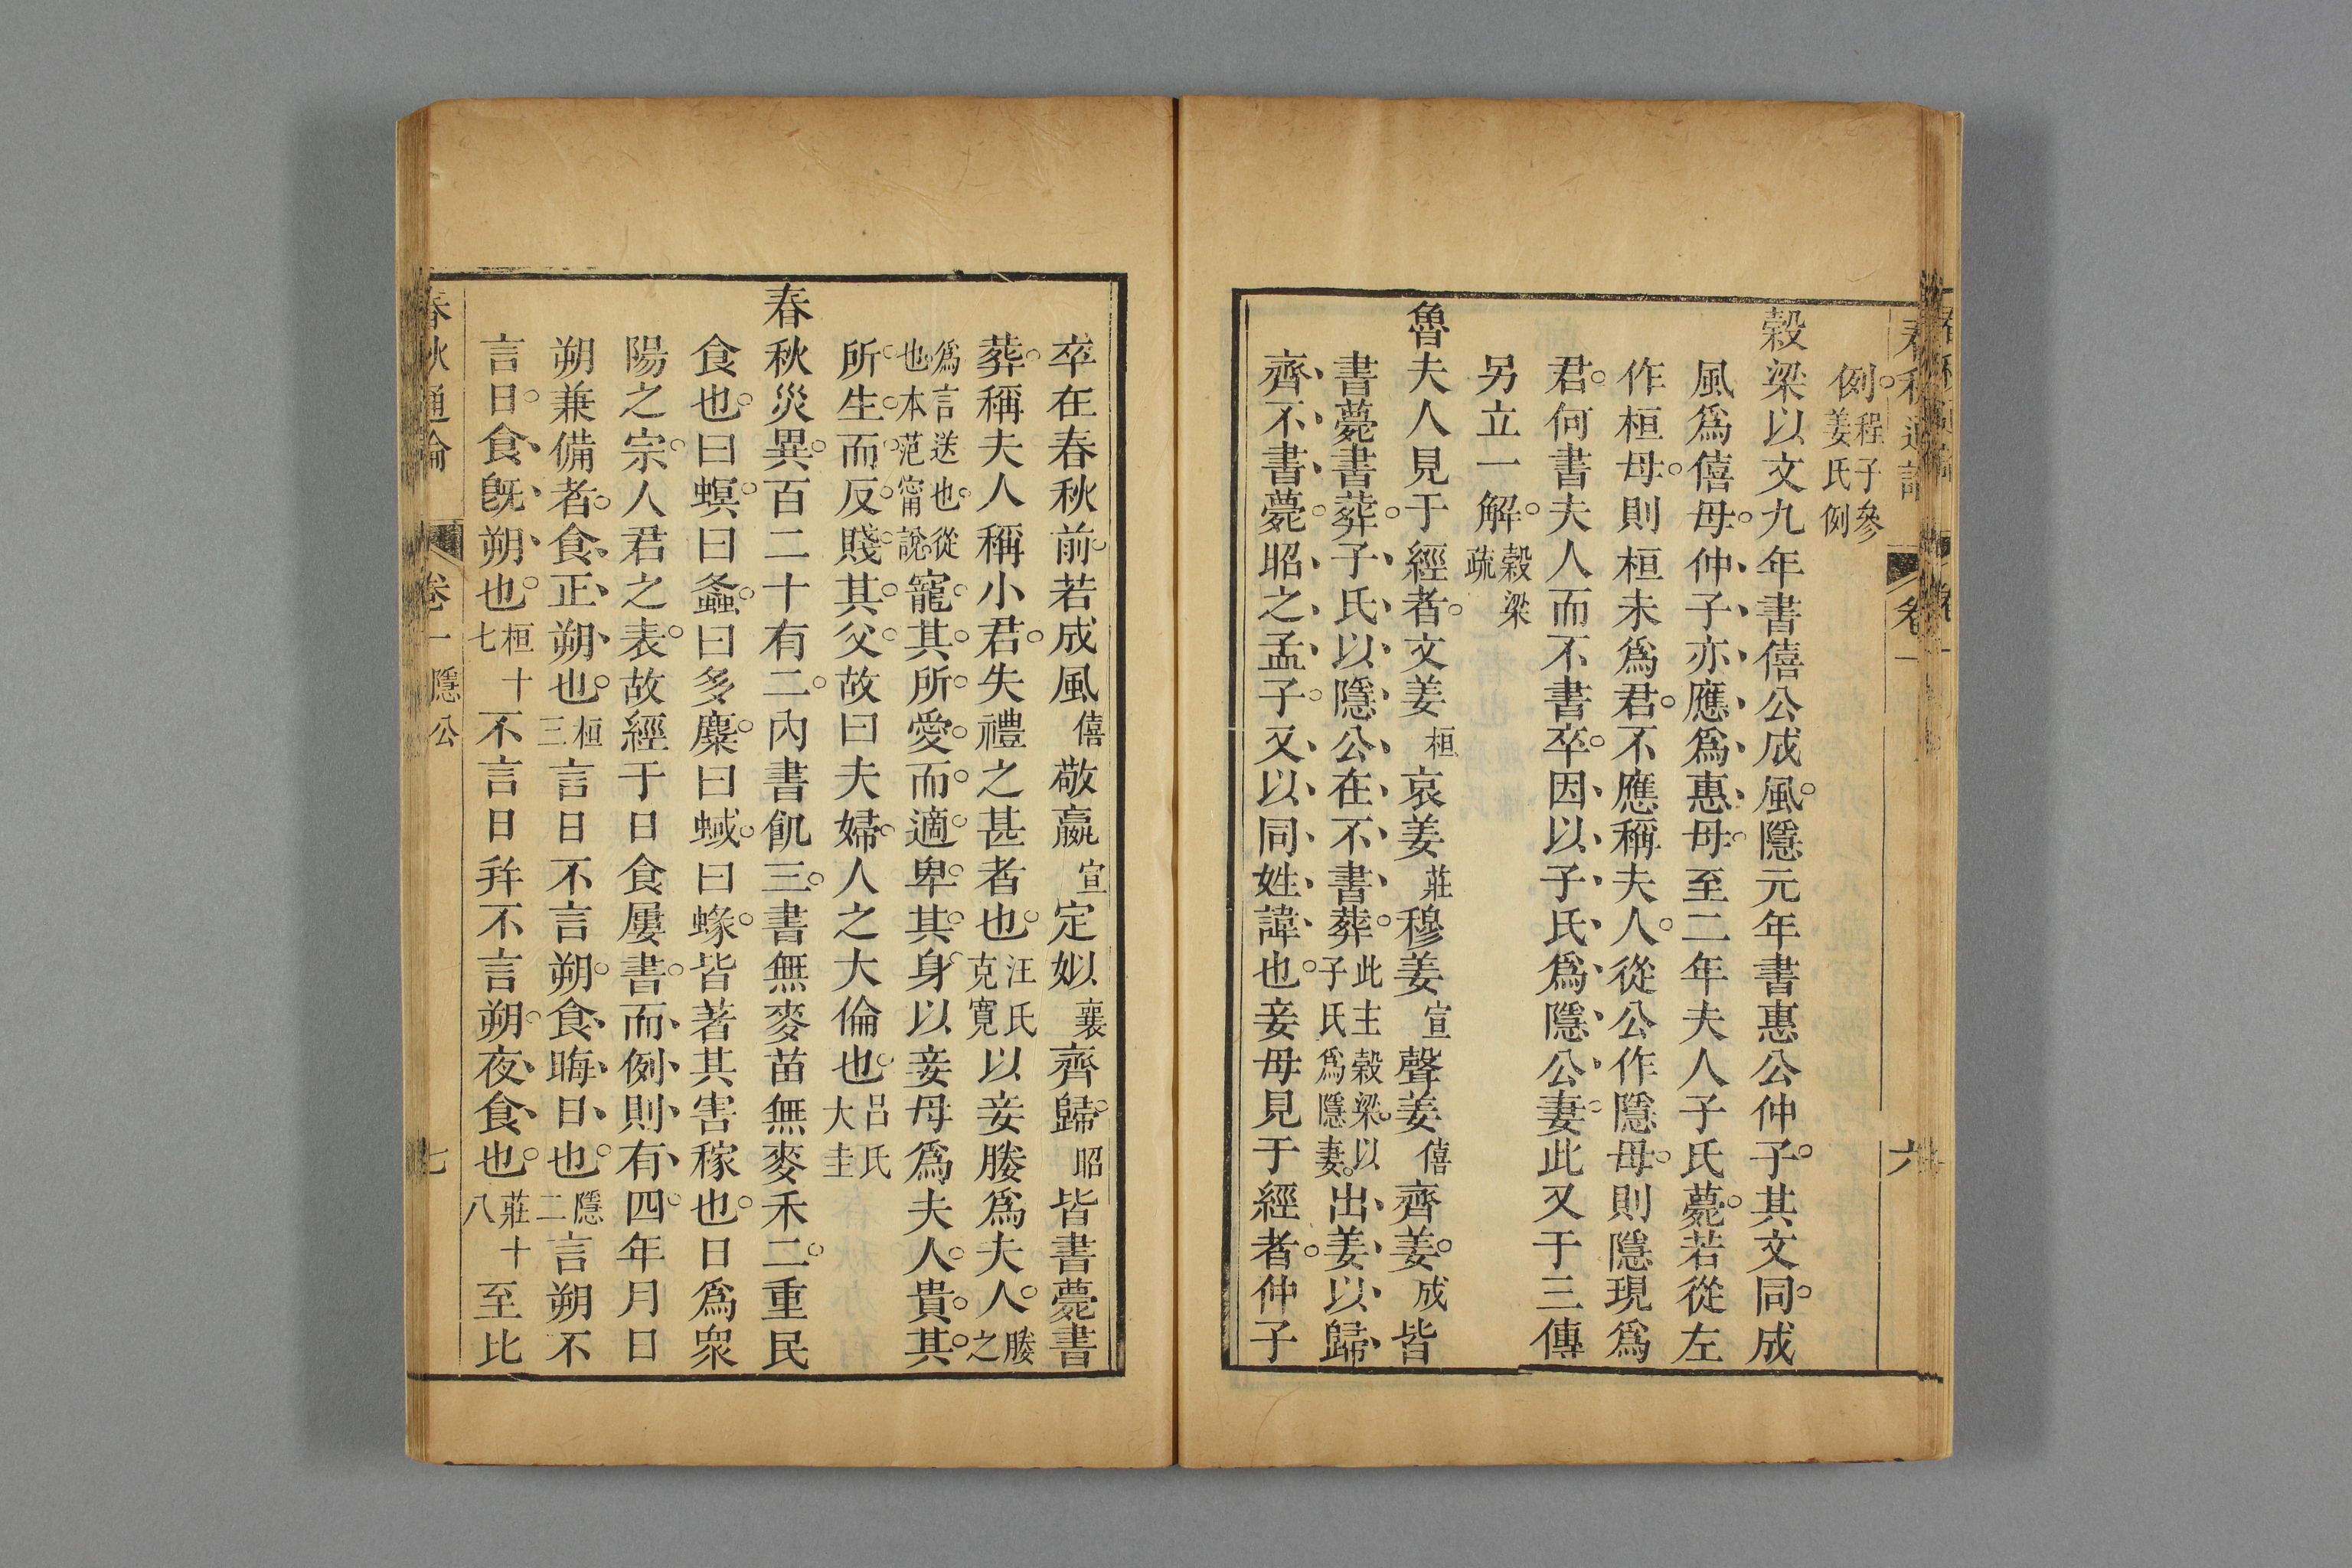 春秋通論 卷一 六
例程子參姜氏例
穀梁以文九年書僖公成風隱元年書惠公仲子其文同成
風爲僖母仲子亦應爲惠母至二年夫人子氏薨若從左
作桓母則桓未爲君不應稱夫人從公作隱母則隱現爲
君何書夫人而不書卒因以子氏爲隱公妻此又于三傳
另立一解穀梁疏
魯夫人見于經者文姜桓哀姜莊穆姜宣聲姜僖齊姜成皆
書薨書葬子氏以隱公在不書葬此主穀梁以子氏爲隱妻出姜以歸
齊不書薨昭之孟子又以同姓諱也妾母見于經者仲子
卒在春秋前若成風僖敬嬴宣定姒襄齊歸昭皆書薨書
葬稱夫人稱小君失禮之甚者也汪氏克寬以妾媵爲夫人媵之
爲言送也從也本范甯說寵其所愛而適卑其身以妾母爲夫人貴其
所生而反賤其父故曰夫婦人之大倫也呂氏大圭
春秋災異百二十有二內書飢三書無麥苗無麥禾二重民
食也曰螟曰螽曰多麋曰蜮曰蝝皆著其害稼也日爲眾
陽之宗人君之表故經于日食屢書而例則有四年月日
朔兼備者食正朔也桓三言日不言朔食晦日也隱二言朔不
言日食旣朔也桓十七不言日幷不言朔夜食也莊十八至比
春秋通論 卷一 隱公 七